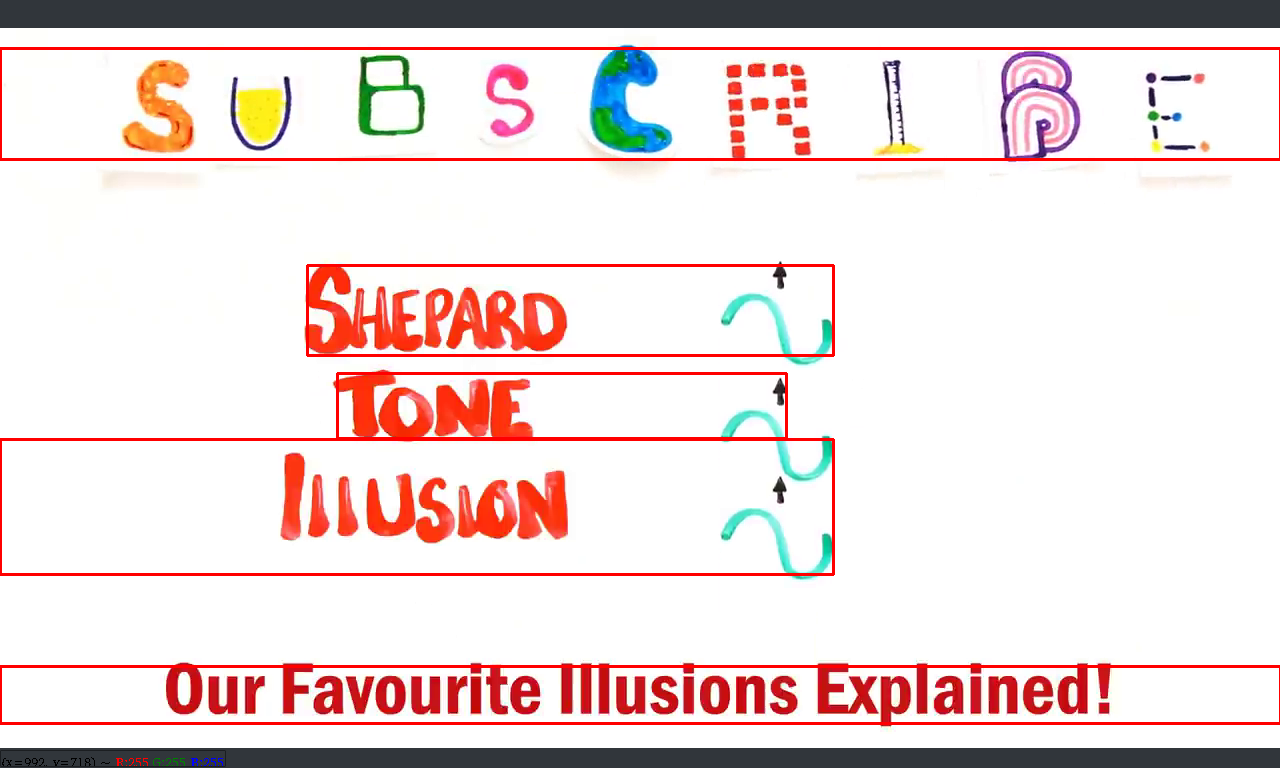 SUBSCRIBE
SHEPARD
TONE
ILLUSION
Our Favourite Illusions Explained!
(x=992, y=718) ~ R:255 G:255 B:255